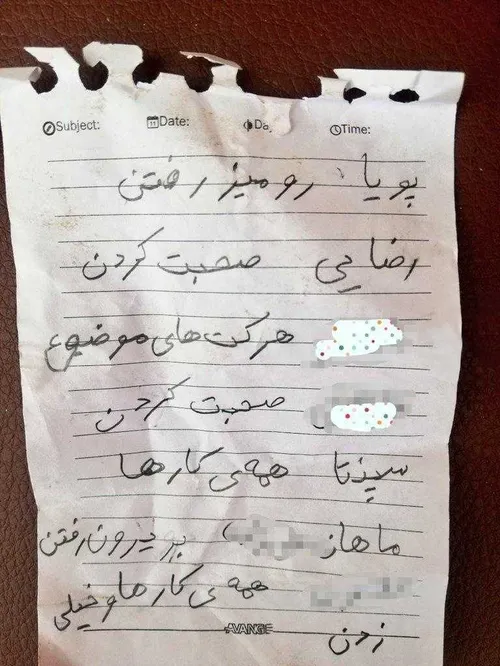 Subject: Date: Da Time:
پویا رو میز رفتن
رضایی صحبت کردن
هرکت های موضیوع
صحبت کردن
سپنتا همه ی کارها
ماهان بیرون رفتن
همه ی کارها و خیلی
زدن
AVANGE